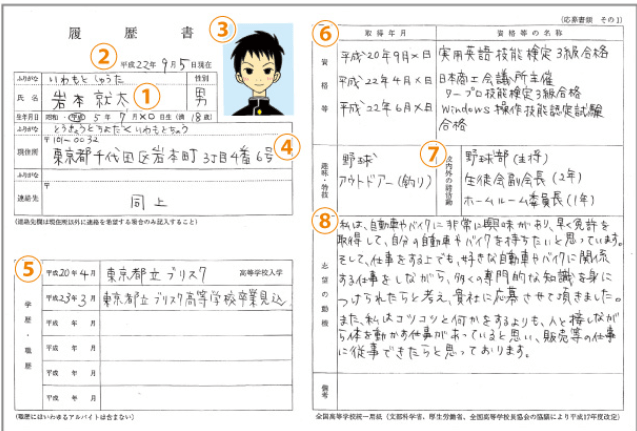 (応募書類 その1)
履歴書
③
②
平成22年 9月 5日現在
ふりがな いわもと しゅうた 性別
氏名 岩本 就太 ① 男
生年月日 昭和・平成 5年 7月 ×日生 (満 18歳)
ふりがな とうきょうと ちよだく いわもとちょう
現住所 〒101-0032
東京都千代田区岩本町 3丁目4番 6号 ④
ふりがな
連絡先 〒
同上
(連絡先欄は現住所以外に連絡を希望する場合のみ記入すること)
⑤
学歴・職歴
平成20年4月 東京都立 ブリスク 高等学校入学
平成23年3月 東京都立 ブリスク高等学校卒業見込
平成 年 月
平成 年 月
平成 年 月
平成 年 月
(職歴にはいわゆるアルバイトは含まない)
⑥
取得年月 資格等の名称
資格等
平成20年9月×日 実用英語技能検定 3級合格
平成22年4月×日 日本商工会議所主催
ワープロ技能検定3級合格
平成22年6月×日 Windows 操作技能認定試験
合格
⑦
趣味・特技
野球
アウトドアー(釣り)
校内外の諸活動
野球部(主将)
生徒会副会長(2年)
ホームルーム委員長(1年)
⑧
志望の動機
私は、自動車やバイクに非常に興味があり、早く免許を
取得して、自分の自動車やバイクを持ちたいと思っています。
そして、仕事をする上でも、好きな自動車やバイクに関係
する仕事をしながら、多くの専門的な知識を身に
つけられたらと考え、貴社に応募させて頂きました。
また、私はコツコツと何かをするよりも、人と接しなが
ら体を動かす仕事があっていると思い、販売等の仕事
に従事できたらと思っております。
備考
全国高等学校統一用紙 (文部科学省、厚生労働省、全国高等学校長協会の協議により平成17年度改定)